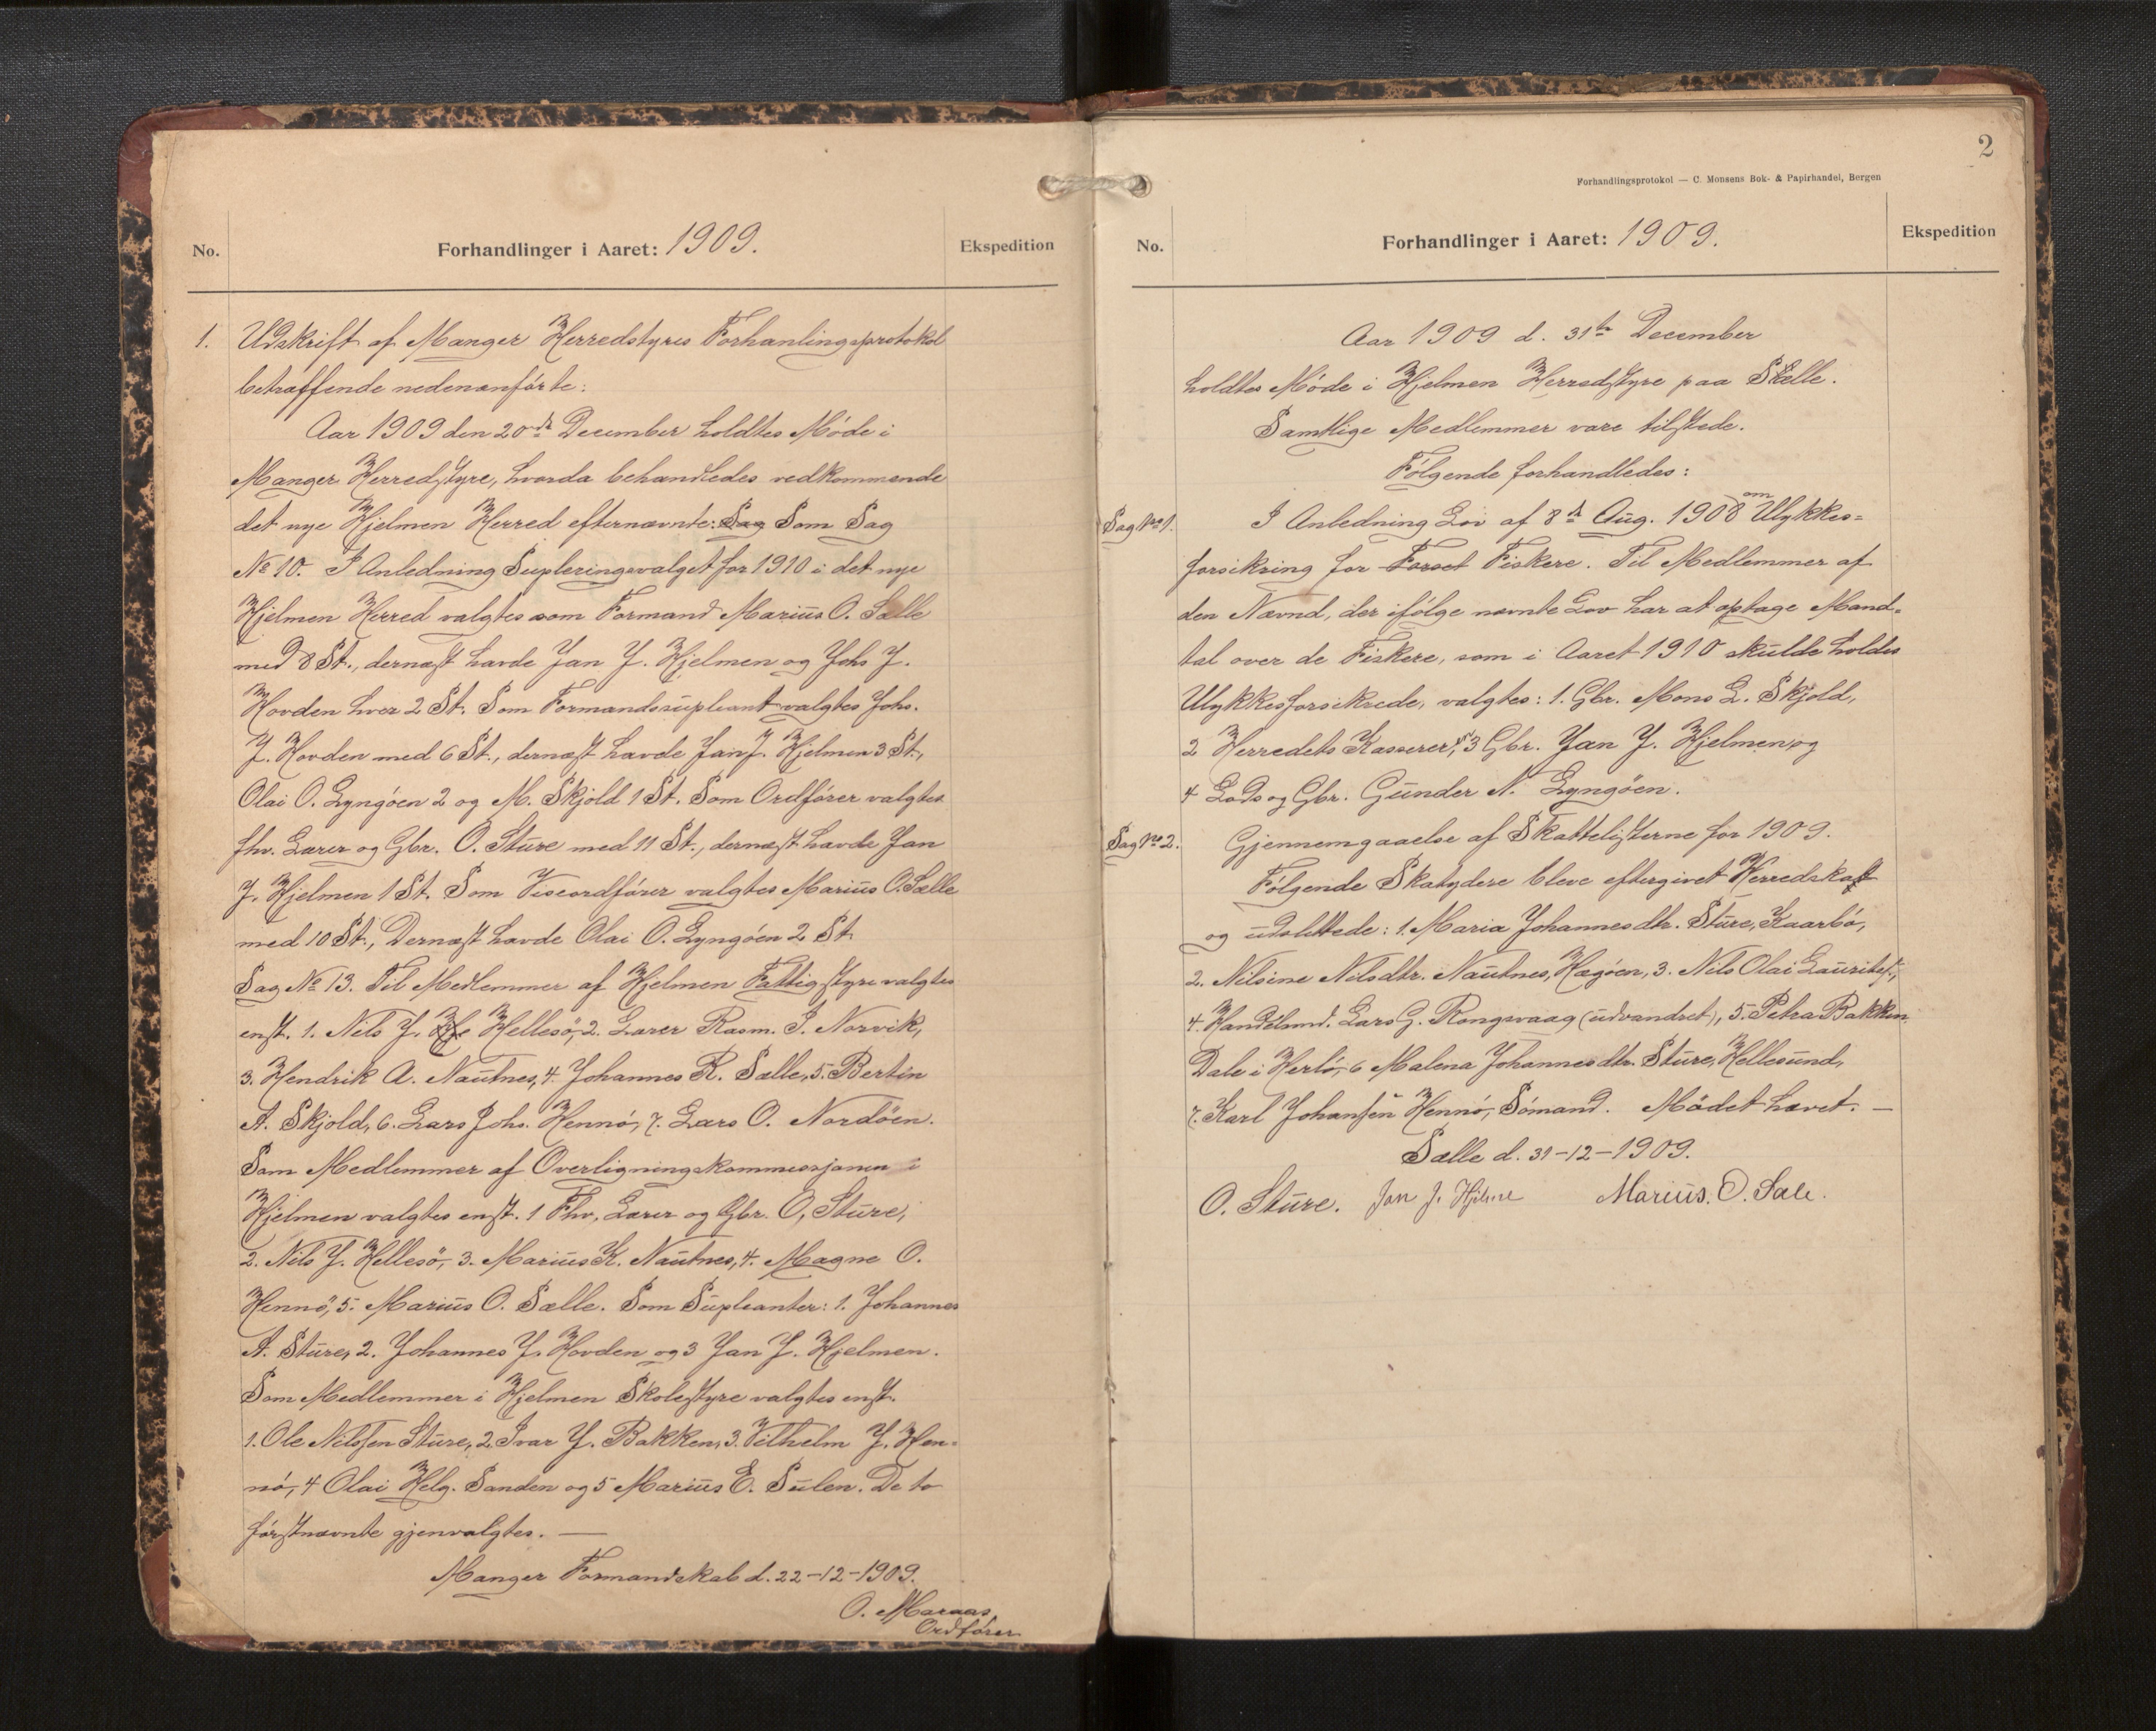 No.
Forhandlinger i Aaret: 1909.
Ekspedition
1. Udskrift af Manger Herredstyres Forhanlingsprotokol
betræffende nedenanførte:
Aar 1909 den 20de December holdtes Møde i
Manger Herredstyre, hvorda behandledes vedkommende
det nye Hjelmen Herred efternævnte: Sag Som Sag
No 10. I Anledning Supleringsvalget for 1910 i det nye
Hjelmen Herred valgtes som Formand Marius O. Sælle
med 8 St., dernæst havde Jan J. Hjelmen og Johs J.
Hovden hver 2 St. Som Formandssupleant valgtes Johs.
J. Hovden med 6 St., dernæst havde Jan J. Hjelmen 3 St.,
Olai O. Lyngøen 2 og M. Skjold 1 St. Som Ordfører valgtes
fhv. Lærer og Gbr. O. Sture med 11 St., dernæst havde Jan
J. Hjelmen 1 St. Som Viseordfører valgtes Marius O. Sælle
med 10 St., Dernæst havde Olai O. Lyngøen 2 St.
Sag No 13. Til Medlemmer af Hjelmen Fattigstyre valgtes
enst. 1. Nils J. Hellesø, 2. Lærer Rasm. J. Norvik,
3. Hendrik A. Nautnes, 4. Johannes R. Sælle, 5. Bertin
A. Skjold, 6. Lars Johs. Hennø, 7. Lars O. Nordøen.
Som Medlemmer af Overligningskommissjonen i
Hjelmen valgtes enst. 1 Fhv. Lærer og Gbr. O. Sture,
2. Nils J. Hellesø, 3. Marius K. Nautnes, 4. Magne O.
Hennø, 5. Marius O. Sælle. Som Supleanter: 1. Johannes
A. Sture, 2. Johannes J. Hovden og 3 Jan J. Hjelmen.
Som Medlemmer i Hjelmen Skolestyre valgtes enst.
1. Ole Nilssen Sture, 2. Ivar J. Bakken, 3. Vilhelm J. Hen-
nø, 4 Olai Helg. Sanden og 5 Marius E. Sulen. De to
førstnævnte gjenvalgtes. —
Manger Formandskab d. 22-12-1909.
O. Maraas
Ordfører
2
Forhandlingsprotokol — C. Monsens Bok- & Papirhandel, Bergen
No.
Forhandlinger i Aaret: 1909.
Ekspedition
Aar 1909 d. 31te December
holdtes Møde i Hjelmen Herredstyre paa Sælle.
Samtlige Medlemmer vare tilstede.
Følgende forhandledes:
Sag No 1. I Anledning Lov af 8de Aug. 1908 om Ulykkes-
forsikring for Forset Fiskere. Til Medlemmer af
den Nævnd, der ifølge nævnte Lov har at optage Mand-
tal over de Fiskere, som i Aaret 1910 skulde holdes
Ulykkesforsikrede, valgtes: 1. Gbr. Mons L. Skjold,
2 Herredets Kasserer, 3 Gbr. Jan J. Hjelmen og
4 Lods og Gbr. Gunder N. Lyngøen.
Sag No 2. Gjennemgaaelse af Skattelisterne for 1909.
Følgende Skatydere bleve eftergivet Herredskat
og udslettede: 1. Maria Johannesdtr. Sture, Kaarbø,
2. Nilsine Nilsdtr. Nautnes, Hægøen, 3. Nils Olai Lauritss.,
4. Handelsmd. Lars G. Rongevaag (udvandret), 5. Petra Bakken
Dale i Herlø, 6 Malena Johannesdtr. Sture, Hellesund,
7. Karl Johansen Hennø, Sømand. Mødet hævet. —
Sælle d. 31-12-1909.
O. Sture. Jan J. Hjelme Marius. O. Sæle.